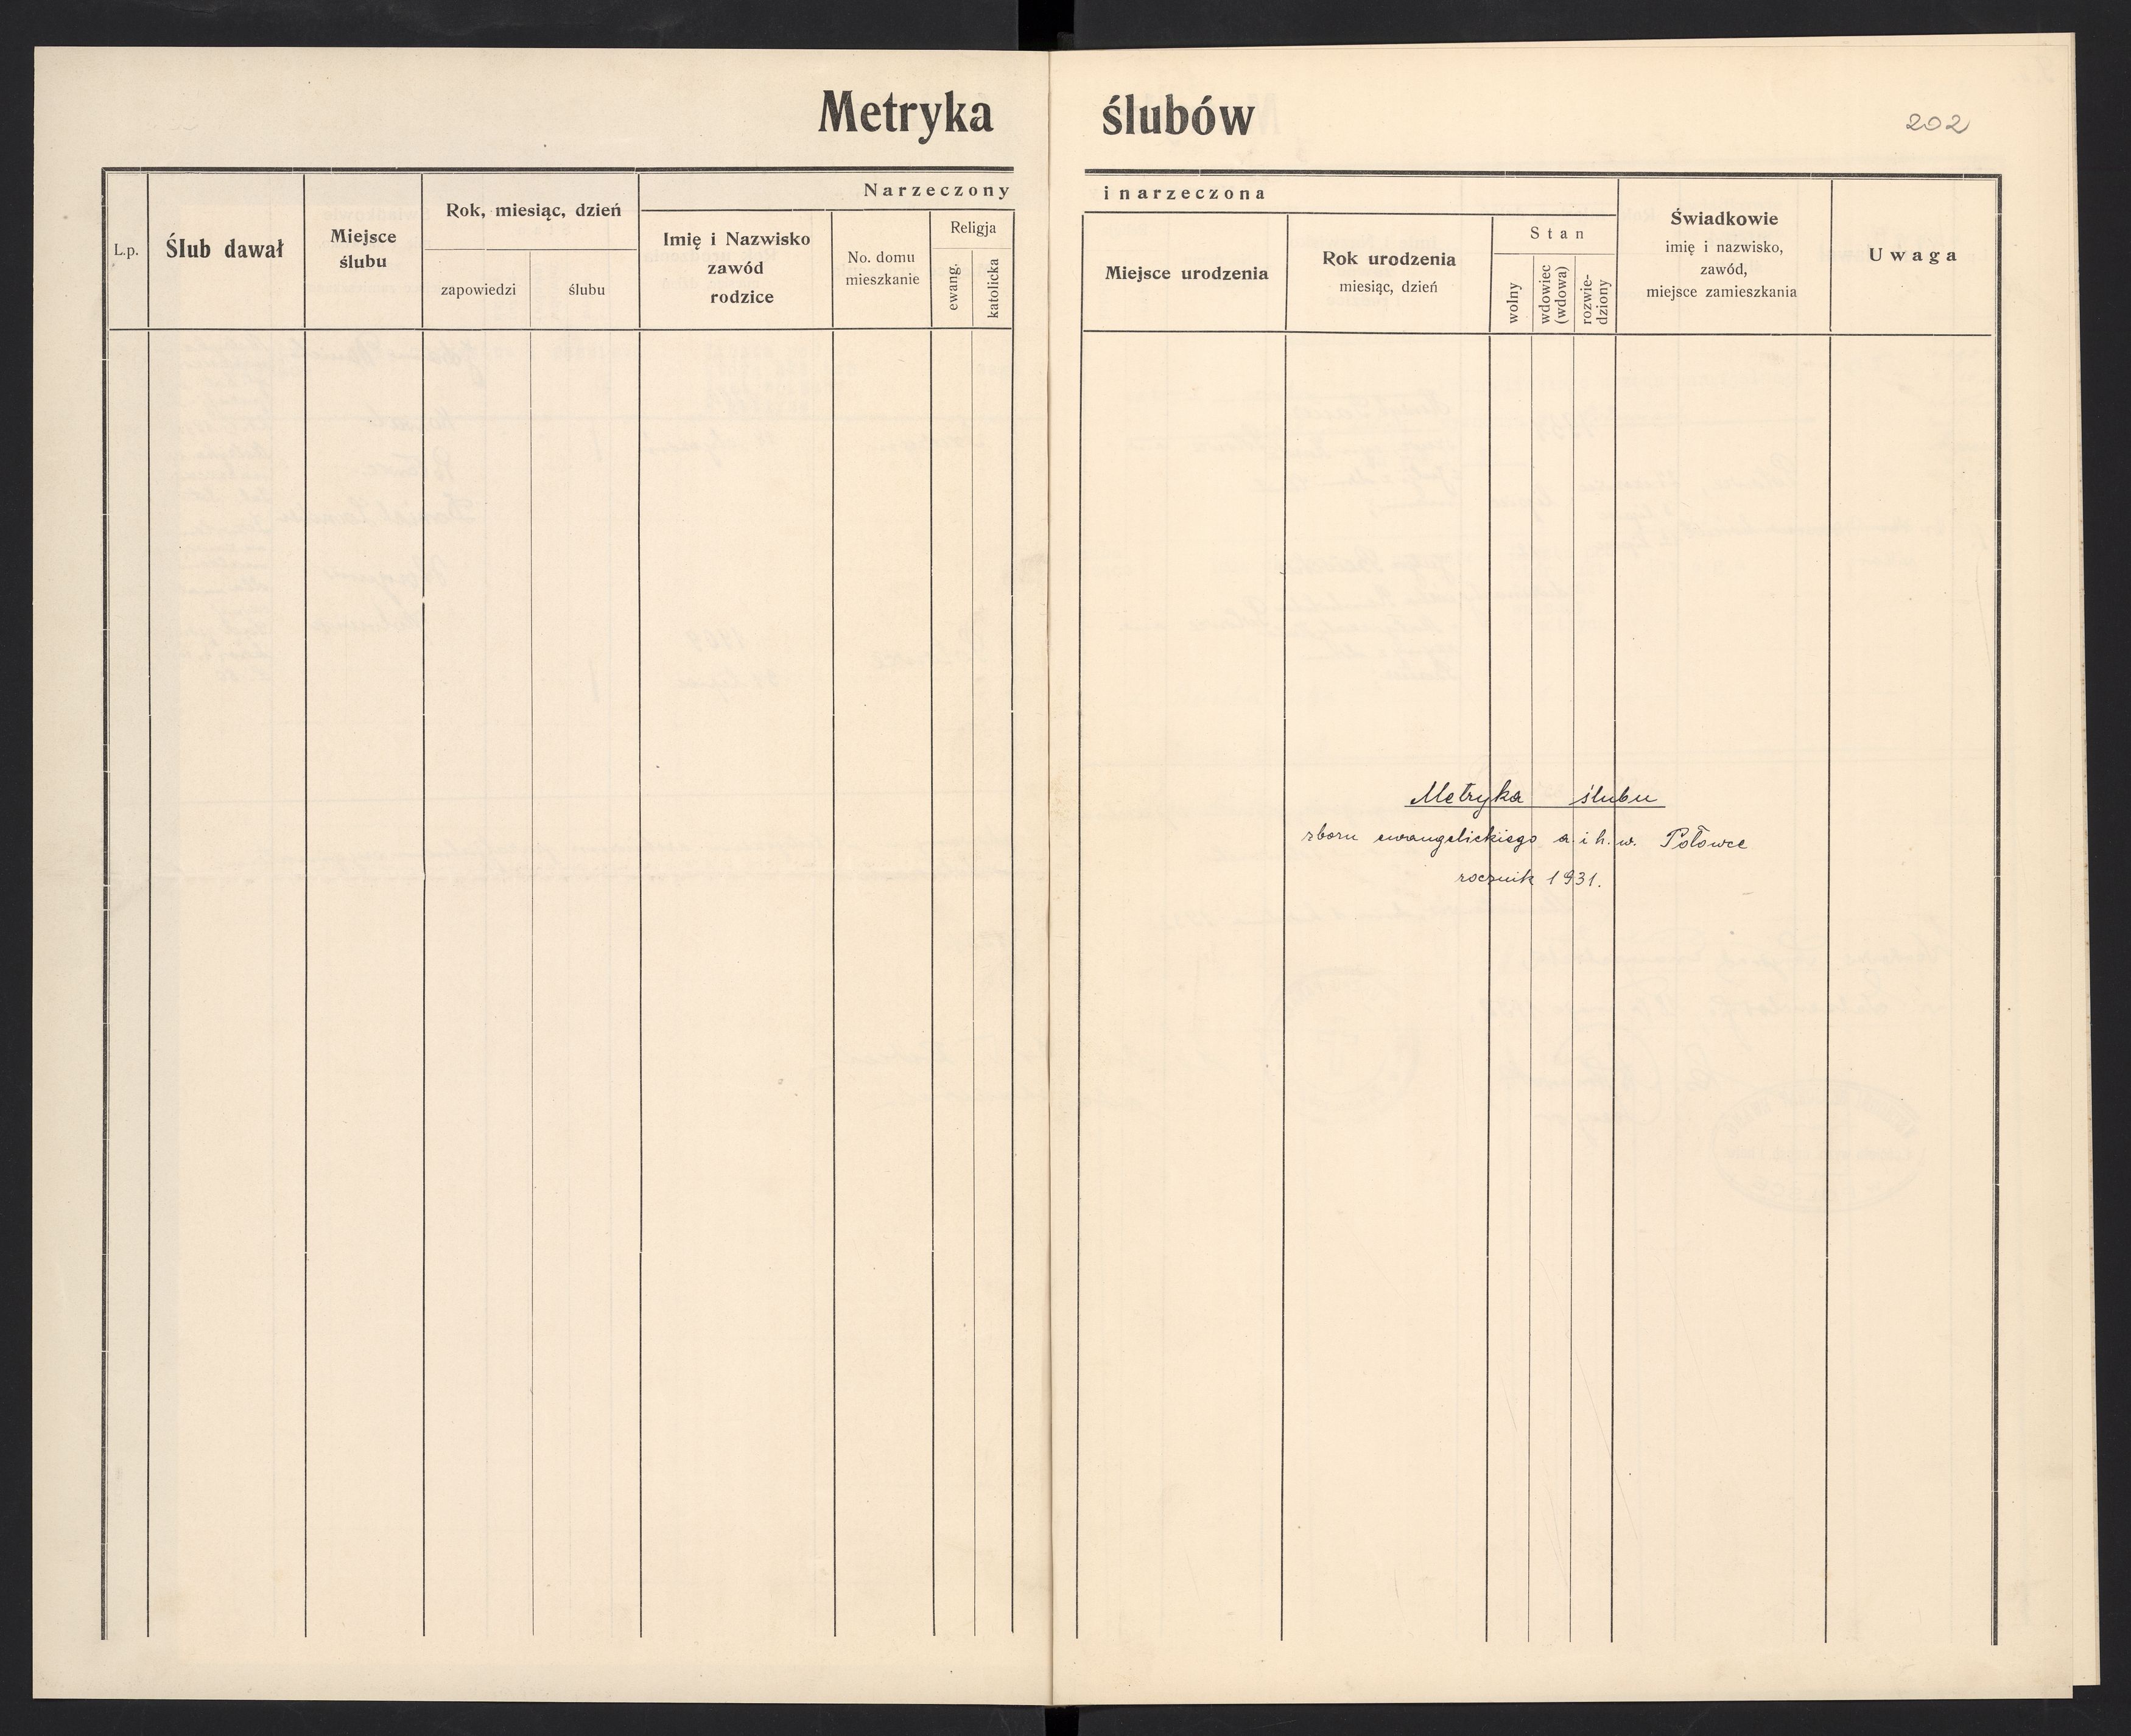 Metryka ślubów
202
Narzeczony i narzeczona
L.p.
Ślub dawał
Miejsce
ślubu
Rok, miesiąc, dzień
zapowiedzi
ślubu
Imię i Nazwisko
zawód
rodzice
No. domu
mieszkanie
Religja
ewang.
katolicka
Miejsce urodzenia
Rok urodzenia
miesiąc, dzień
Stan
wolny
wdowiec
(wdowa)
rozwie-
dziony
Świadkowie
imię i nazwisko,
zawód,
miejsce zamieszkania
Uwaga
Metryka ślubu
zboru ewangelickiego a. i h. w. Połowce
rocznik 1931.